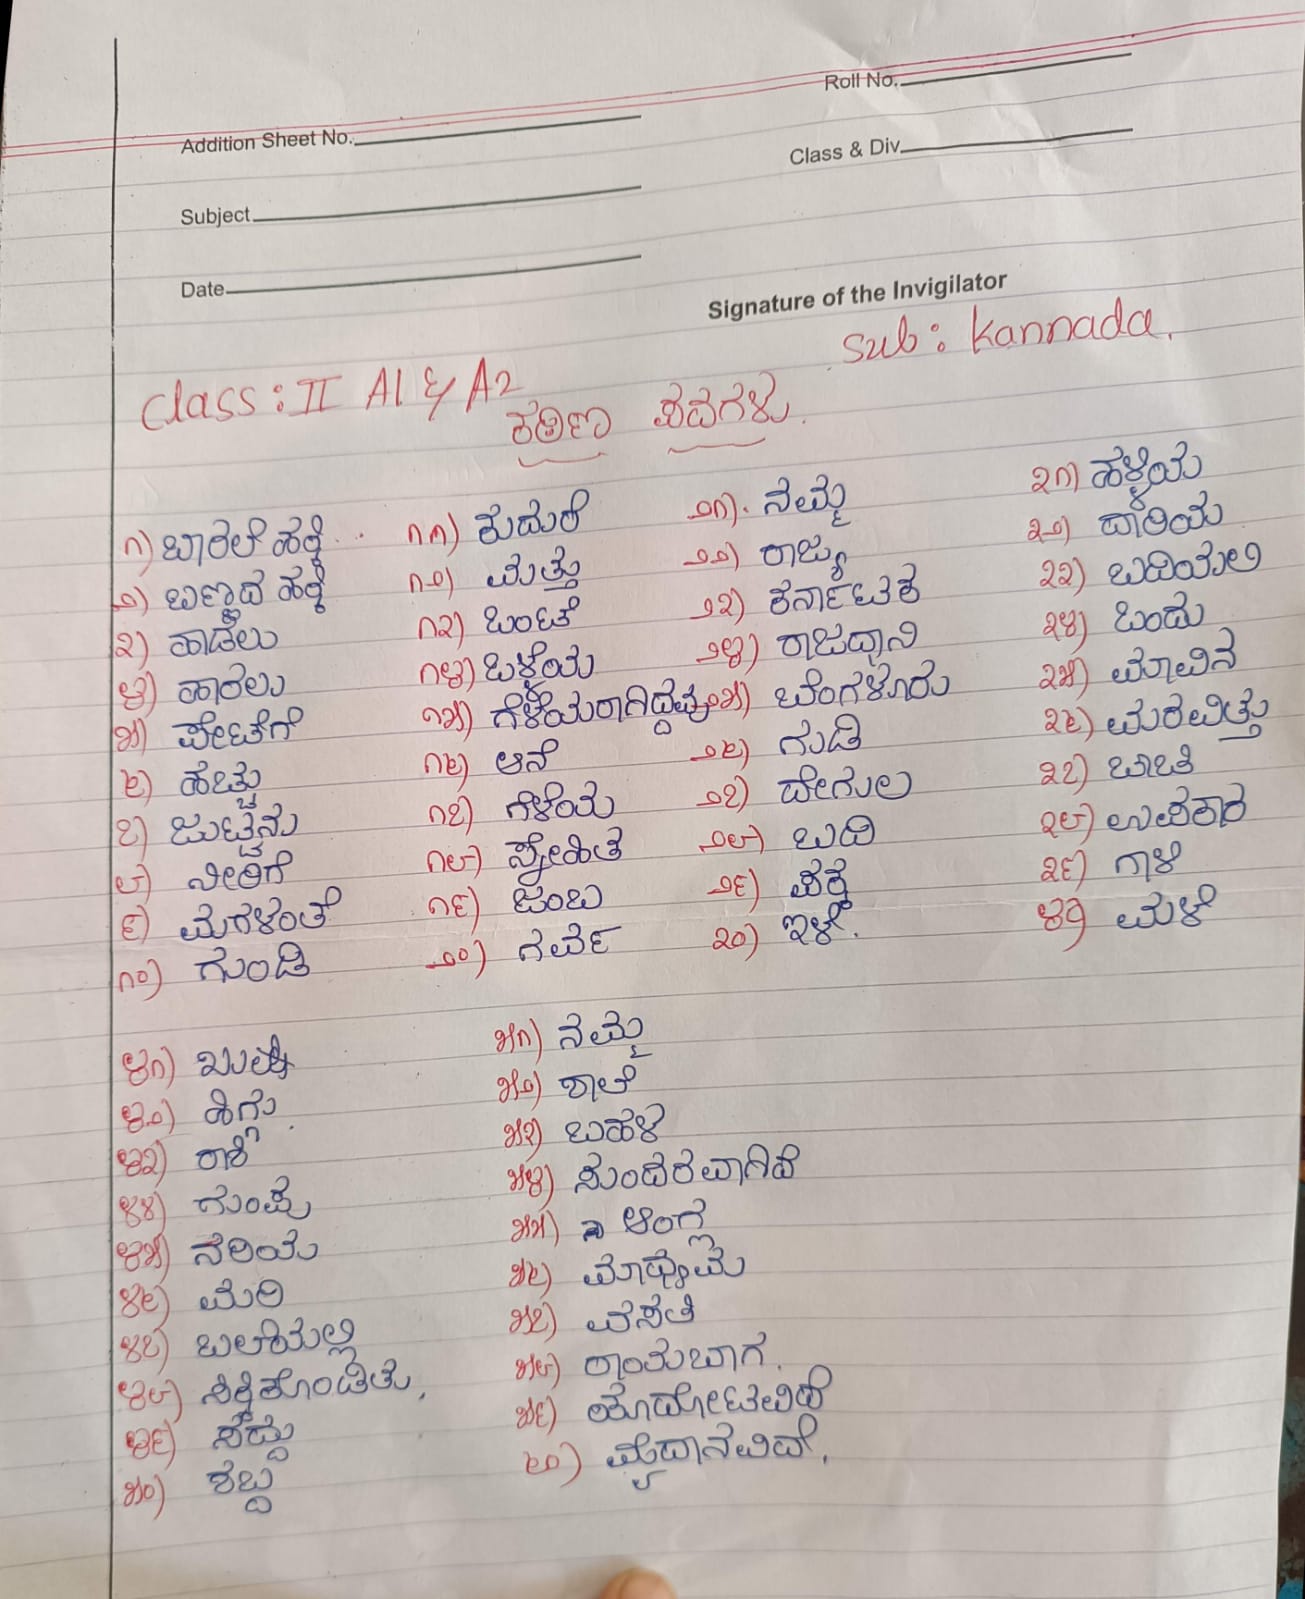 Roll No.
Addition Sheet No.
Class & Div
Subject
Date
Signature of the Invigilator
Sub: Kannada.
Class: II A1 & A2
ಕಠಿಣ ಪದಗಳು.
೧) ಬಾರಲೆ ಹಕ್ಕಿ
೨) ಬಣ್ಣದ ಹಕ್ಕಿ
೩) ಹಾಡಲು
೪) ಹಾರಲು
೫) ಪೇಟೆಗೆ
೬) ಹೆಚ್ಚು
೭) ಜುಟ್ಟನು
೮) ನೀರಿಗೆ
೯) ಮಗಳಂತೆ
೧೦) ಗುಂಡಿ
೧೧) ಕುದುರೆ
೧೨) ಮತ್ತು
೧೩) ಒಂಟೆ
೧೪) ಒಳ್ಳೆಯ
೧೫) ಗೆಳೆಯರಾಗಿದ್ದವು
೧೬) ಆನೆ
೧೭) ಗೆಳೆಯ
೧೮) ಸ್ನೇಹಿತ
೧೯) ಜಂಬ
೨೦) ಗರ್ವ
೨೧) ನಮ್ಮ
೨೨) ರಾಜ್ಯ
೨೩) ಕರ್ನಾಟಕ
೨೪) ರಾಜಧಾನಿ
೨೫) ಬೆಂಗಳೂರು
೨೬) ಗುಡಿ
೨೭) ದೇಗುಲ
೨೮) ಬದಿ
೨೯) ಪಕ್ಕ
೩೦) ಇಳೆ.
೩೧) ಹಳ್ಳಿಯ
೩೨) ದಾರಿಯ
೩೩) ಬದಿಯಲಿ
೩೪) ಒಂದು
೩೫) ಮಾವಿನ
೩೬) ಮರವಿತ್ತು
೩೭) ಬಾಚಿ
೩೮) ಉಪಕಾರ
೩೯) ಗಾಳಿ
೪೦) ಮಳೆ
೪೧) ಖುಷಿ
೪೨) ಹಿಗ್ಗು.
೪೩) ರಾಶಿ
೪೪) ಗುಂಪು
೪೫) ನರಿಯ
೪೬) ಮರಿ
೪೭) ಬಲೆಯಲ್ಲಿ
೪೮) ಸಿಕ್ಕಿಕೊಂಡಿತು.
೪೯) ಸದ್ದು
೫೦) ಶಬ್ದ
೫೧) ನಮ್ಮ
೫೨) ಶಾಲೆ
೫೩) ಬಹಳ
೫೪) ಸುಂದರವಾಗಿದೆ
೫೫) ಆಂಗ್ಲ
೫೬) ಮಾಧ್ಯಮ
೫೭) ವಸತಿ
೫೮) ರಾಯಬಾಗ.
೫೯) ಕೈದೋಟವಿದೆ
೬೦) ಮೈದಾನವಿದೆ.